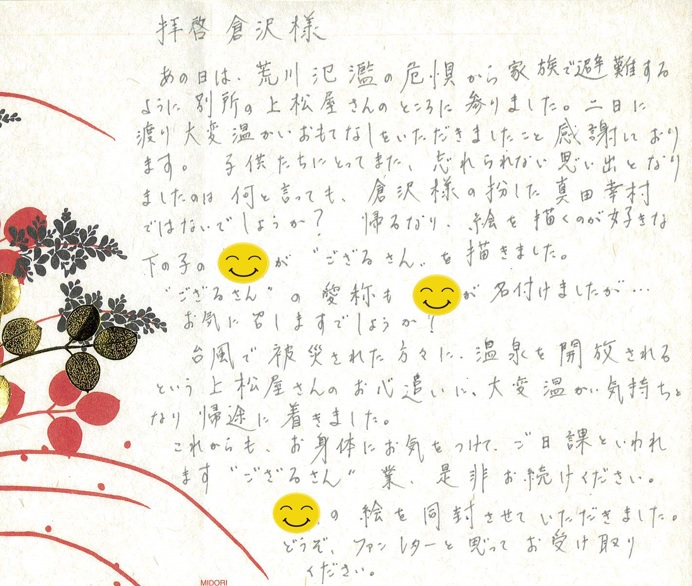 拝啓 倉沢様
あの日は、荒川氾濫の危惧から家族で避難する
ように別所の上松屋さんのところに参りました。二日に
渡り大変温かいおもてなしをいただきましたこと感謝しており
ます。 子供たちにとってまた、忘れられない思い出となり
ましたのは何と言っても、倉沢様の扮した真田幸村
ではないでしょうか? 帰るなり、絵を描くのが好きな
下の子の が"ござるさん"を描きました。
"ござるさん"の愛称も が名付けましたが…
お気に召しますでしょうか?
台風で被災された方々に、温泉を開放される
という上松屋さんのお心遣いに、大変温かい気持ちと
なり帰途に着きました。
これからも、お身体にお気をつけて、ご日課といわれ
ます"ござるさん"業、是非お続けください。
の絵を同封させていただきました。
どうぞ、ファンレターと思ってお受け取り
ください。
MIDORI